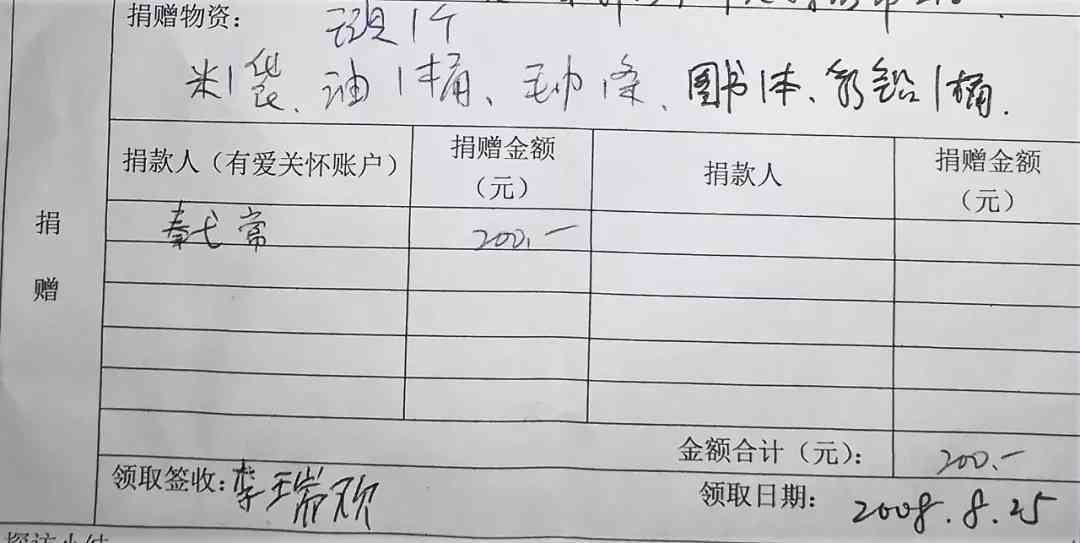 捐赠物资:
米1袋、油1桶、毛巾1条、图书1本、彩铅1桶.
捐赠
捐款人(有爱关怀账户) 捐赠金额(元) 捐款人 捐赠金额(元)
秦弋常 200.-
金额合计(元): 200.-
领取签收:李瑞欣 领取日期: 2008.8.25